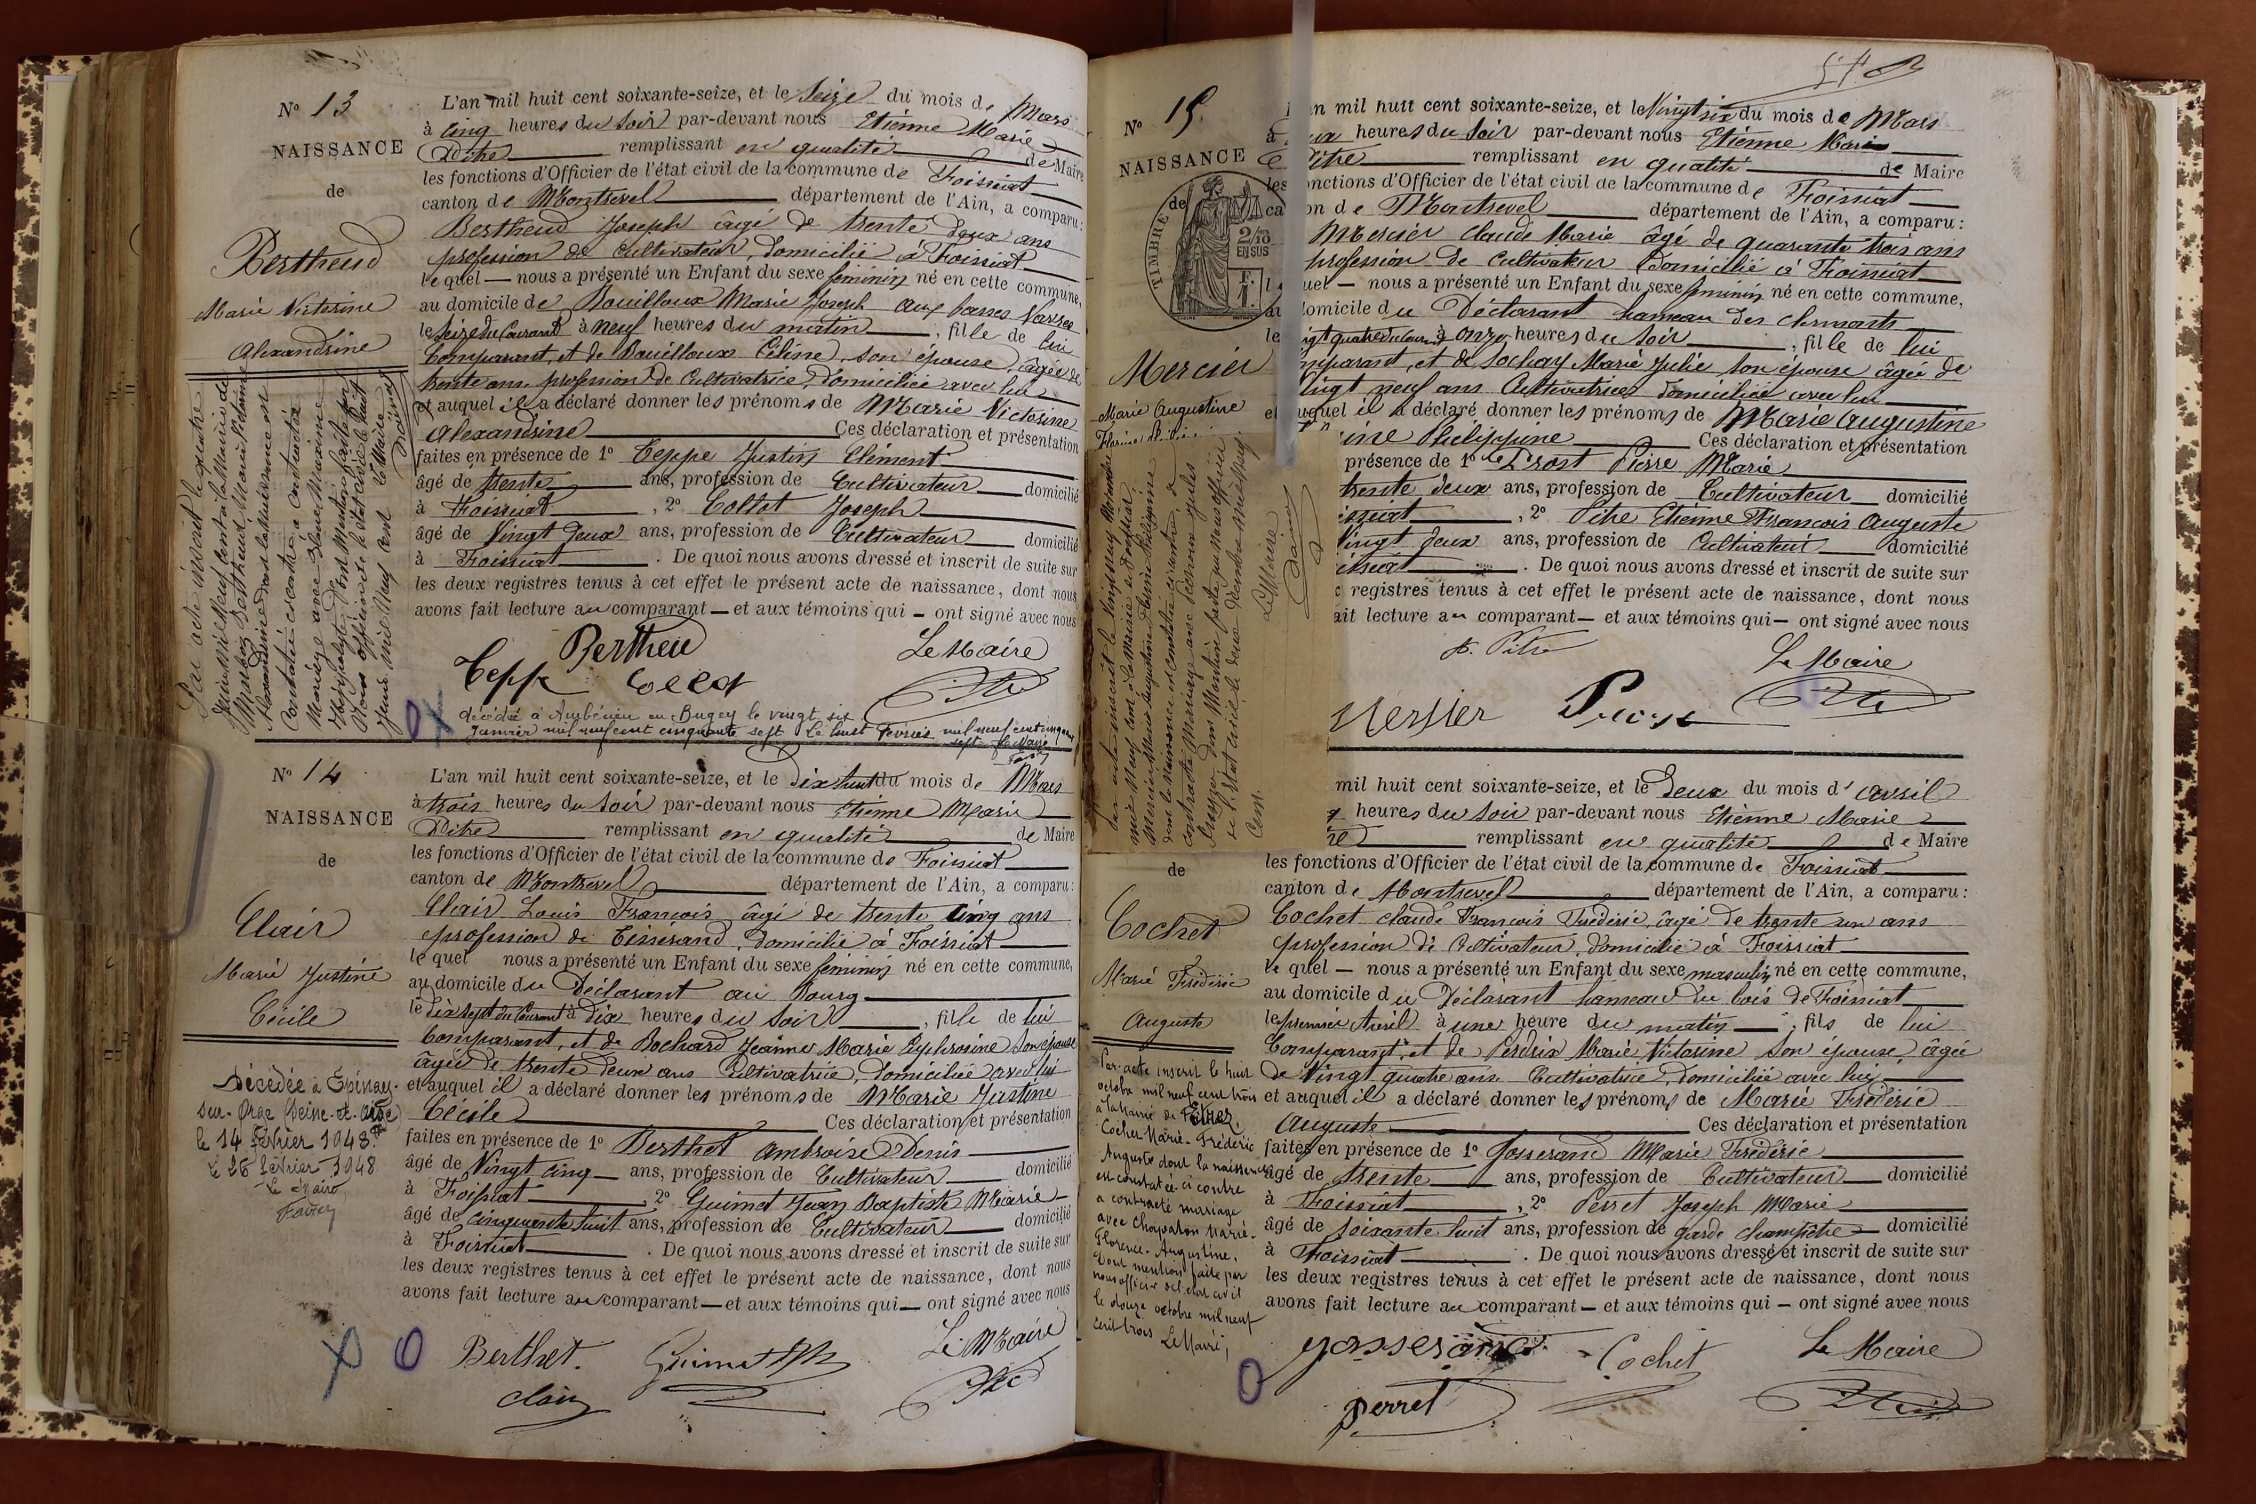 N° 13
NAISSANCE
de
Bertheud
Marie Victorine
Alexandrine
L'an mil huit cent soixante-seize, et le Seize du mois de Mars
à cinq heures du Soir par-devant nous Etienne Marie
Pitre remplissant en qualité de Maire
les fonctions d'Officier de l'état civil de la commune de Foissiat
canton de Montrevel département de l'Ain, a comparu:
Bertheud Joseph âgé de trente deux ans
profession de Cultivateur, domicilié à Foissiat
le quel — nous a présenté un Enfant du sexe féminin né en cette commune,
au domicile de Bouilloux Marie Joseph aux basses Varses
le Seize du Courant à neuf heures du matin, fille de lui
Comparant, et de Bouilloux Céline, son épouse, âgée de
trente ans, profession de Cultivatrice, domiciliée avec lui
et auquel il a déclaré donner les prénoms de Marie Victorine
Alexandrine Ces déclaration et présentation
faites en présence de 1° Teppe Justin Clément
âgé de trente ans, profession de Cultivateur domicilié
à Foissiat, 2° Collot Joseph
âgé de Vingt deux ans, profession de Cultivateur domicilié
à Foissiat. De quoi nous avons dressé et inscrit de suite sur
les deux registres tenus à cet effet le présent acte de naissance, dont nous
avons fait lecture au comparant — et aux témoins qui — ont signé avec nous
Bertheu Le Maire
Teppe Collot
décédée à Ambérieu en Bugey le vingt six
Janvier mil neuf cent cinquante sept le huit Février mil neuf cent cinquante
sept Le Maire
Par acte inscrit le quatre
Juin mil neuf cent à la Mairie de
Bertheud Marie Victorine
Alexandrine dont la naissance est
constatée ci-contre a contracté
Mariage avec Blanc Maxime
Hippolyte Dont Mention faite par
Nous officier de l'état civil le huit
Juin mil Neuf Cent Le Maire
N° 14
NAISSANCE
de
Clair
Marie Justine
Cécile
L'an mil huit cent soixante-seize, et le dix huit du mois de Mars
à trois heures du Soir par-devant nous Etienne Marie
Pitre remplissant en qualité de Maire
les fonctions d'Officier de l'état civil de la commune de Foissiat
canton de Montrevel département de l'Ain, a comparu:
Clair Louis François âgé de trente cinq ans
profession de Tisserand, domicilié à Foissiat
le quel nous a présenté un Enfant du sexe féminin né en cette commune,
au domicile du Déclarant au Bourg
le dix sept du Courant à dix heures du Soir, fille de lui
Comparant, et de Bochard Jeanne Marie Euphrosine Son épouse
âgée de trente deux ans Cultivatrice, domiciliée avec lui
et auquel il a déclaré donner les prénoms de Marie Justine
Cécile Ces déclaration et présentation
faites en présence de 1° Berthet Ambroise Denis
âgé de Vingt cinq ans, profession de Cultivateur domicilié
à Foissiat, 2° Guimet Jean Baptiste Marie
âgé de cinquante huit ans, profession de Cultivateur domicilié
à Foissiat. De quoi nous avons dressé et inscrit de suite sur
les deux registres tenus à cet effet le présent acte de naissance, dont nous
avons fait lecture au comparant — et aux témoins qui — ont signé avec nous
Berthet. Guimet Le Maire
Clair
Décédée à Epinay-
sur-Orge (Seine-et-Oise)
le 14 Février 1948.
Le 26 Février 1948
Le Maire
N° 15.
NAISSANCE
de
TIMBRE
2/10
EN SUS
Mercier
Marie Augustine
an mil huit cent soixante-seize, et le Vingt six du mois de Mars
heures du Soir par-devant nous Etienne Marie
Pitre remplissant en qualité de Maire
les fonctions d'Officier de l'état civil de la commune de Foissiat
on de Montrevel département de l'Ain, a comparu:
Mercier Claude Marie âgé de quarante trois ans
profession de Cultivateur domicilié à Foissiat
uel — nous a présenté un Enfant du sexe féminin né en cette commune,
au domicile du Déclarant hameau des
le ingt quatre du Courant à onze heures du Soir, fille de lui
mparant, et de Sochay Marie Julie son épouse âgée de
Vingt neuf ans Cultivatrice domiciliée avec lui
et auquel il a déclaré donner les prénoms de Marie Augustine
ine Philippine Ces déclaration et présentation
présence de 1° Prost Pierre Marie
trente deux ans, profession de Cultivateur domicilié
issiat, 2° Pitre Etienne François Auguste
Vingt deux ans, profession de Cultivateur domicilié
issiat. De quoi nous avons dressé et inscrit de suite sur
registres tenus à cet effet le présent acte de naissance, dont nous
ait lecture au comparant — et aux témoins qui — ont signé avec nous
A. Pitre Le Maire
Mercier Prost
Par acte inscrit le vingt neuf
mil neuf cent à la Mairie de Foissiat
Mercier Marie Augustine Philippine
dont la naissance est constatée ci-contre a
contracté Mariage avec
dont Mention faite par nous officier
de l'état civil le
Cent. Le Maire
mil huit cent soixante-seize, et le Deux du mois d'avril
heures du Soir par-devant nous Etienne Marie
re remplissant en qualité de Maire
les fonctions d'Officier de l'état civil de la commune de Foissiat
canton de Montrevel département de l'Ain, a comparu:
de
Cochet
Marie Frédéric
Auguste
Cochet Claude François Frédéric, âgé de trente un ans
profession de Cultivateur, domicilié à Foissiat
le quel — nous a présenté un Enfant du sexe masculin né en cette commune,
au domicile du Déclarant hameau du bois de Foissiat
le premier Avril à une heure du matin, fils de lui
Comparant, et de Perdrix Marie Victorine Son épouse, âgée
de Vingt quatre ans Cultivatrice, domiciliée avec lui
et auquel il a déclaré donner les prénoms de Marie Frédéric
Auguste Ces déclaration et présentation
faites en présence de 1° Josserand Marie Frédéric
âgé de trente ans, profession de Cultivateur domicilié
à Foissiat, 2° Perret Joseph Marie
âgé de soixante huit ans, profession de garde champêtre domicilié
à Foissiat. De quoi nous avons dressé et inscrit de suite sur
les deux registres tenus à cet effet le présent acte de naissance, dont nous
avons fait lecture au comparant — et aux témoins qui — ont signé avec nous
Josserand Cochet Le Maire
Perret
Par acte inscrit le huit
octobre mil neuf cent trois
à la Mairie de
Cochet Marie-Frédéric
Auguste dont la naissance
est constatée ci-contre
a contracté mariage
avec Chaparon Marie-
Florence-Augustine.
Dont mention faite par
nous officier de l'état civil
le douze octobre mil neuf
cent trois Le Maire;